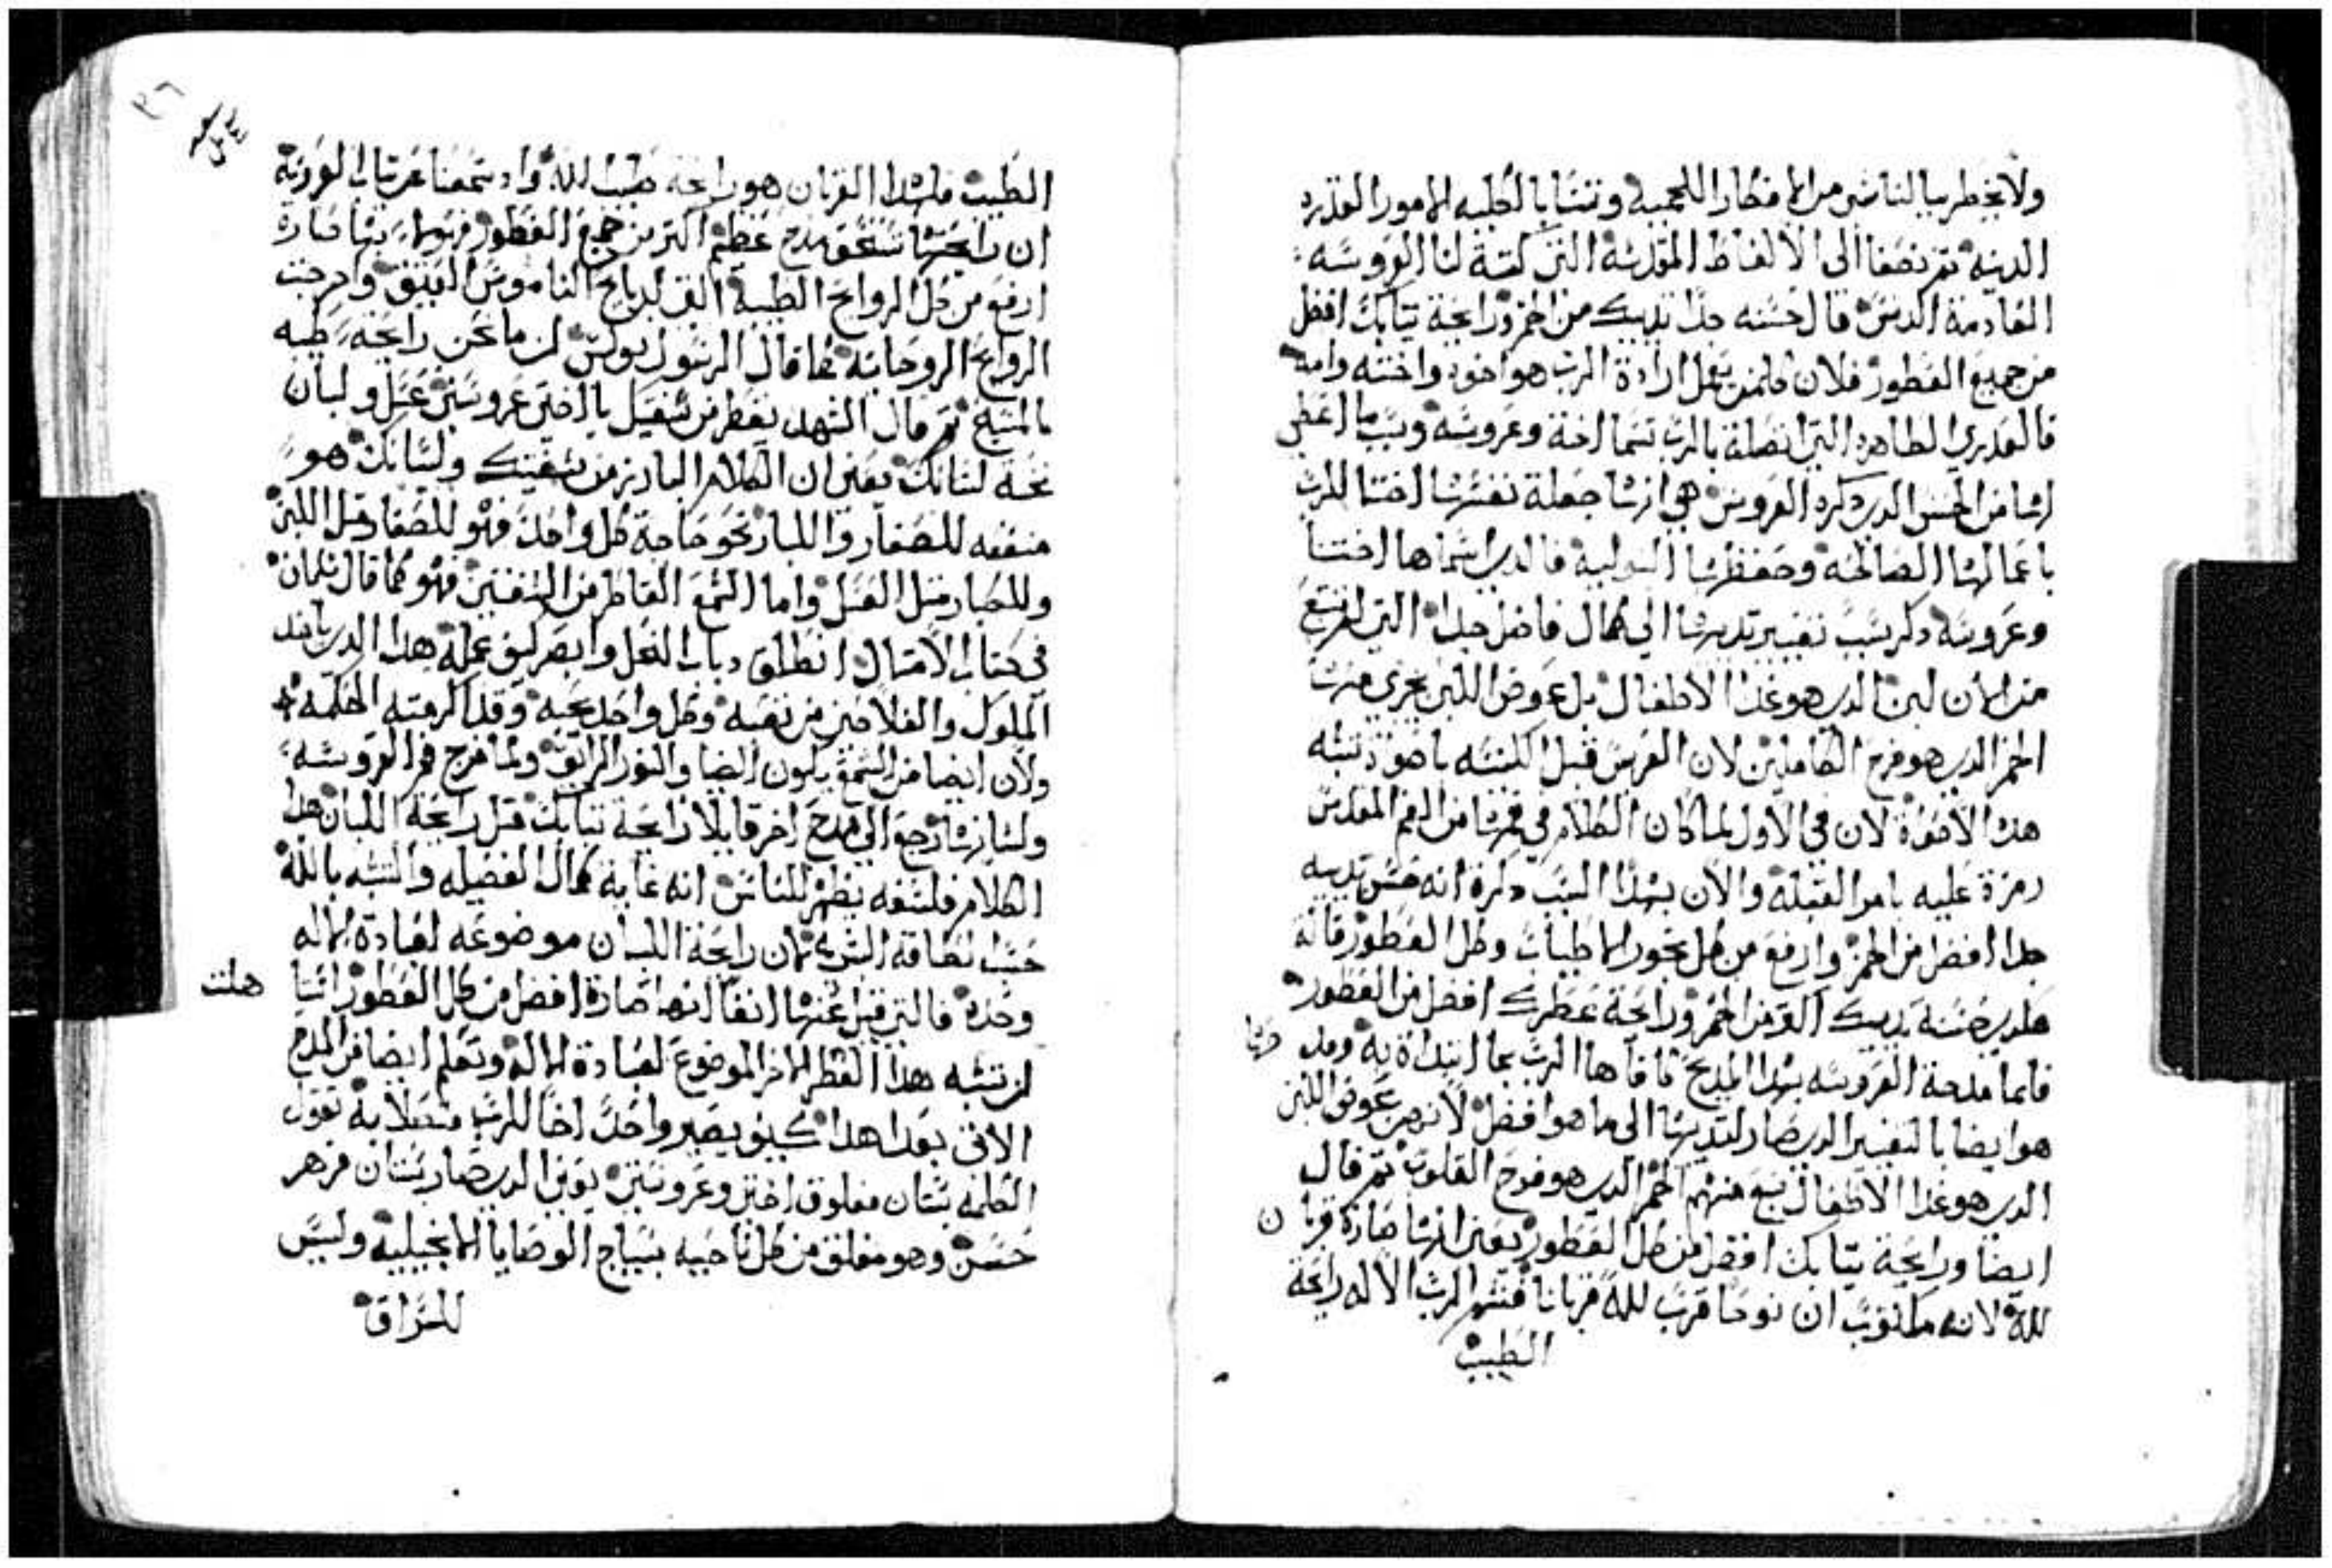 ولا يخطر ببالنا شي من الافكار اللحمية وتتشابا لطلبه الامور القدره
الدنيه ثم نصغا الى الالفاظ المقدسة التي كتبة لنا العروسه
القادمة الدنس قال حسنه جدا ثدييك من الخمر ورايحة ثيابك افضل
من جميع العطور فلان كلمن يعمل ارادة الرب هو اخوه واخته وامه
فالعدري الطاهره التي اتصلة بالرب تسما اخة وعروسه وسبب ما اعطي
لها من الحسن الدي دكره العروس هي انها جعلة نفسها اختا للرب
باعمالها الصالحة وحفظها البتولية فالدي اسماها اختنا
وعروسة دكر سبب تغيير تديها الى كمال فاضل جدا التي لم تنبع
من الان لبن الدي هو غدا الاطفال بل عوض اللبن يجري منها
الخمر الدي هو فرح الكاملين لان العرس قبل الكنيسه ماخوذ نسبه
هده الاخوة لان في الاول لما كان الكلام في فمها من الفم المقدس
رمزة عليه بامر القبلة والان بهدا السبب دكرة انه حسن تدييه
جدا افضل من الخمر وارفع من كل بخور الاطياب وكل العطور قالة
هكدي حسنة تدييك اكثر من الخمر ورايحة عطرك افضل من العطور
فلما مدحة العروسه بهدا المديح كافاها الرب بما ابتداة به ومد
هو ايضا بالتغيير الدي صار لتديها الى ما هو افضل لانهم عوض اللبن
الدي هو غدا الاطفال نبع منهم الخمر الدي هو فرح القلوب ثم قال
ايضا ورايحة ثيابك افضل من كل العطور يعني انها صارة قربان
لله لانه مكتوب ان نوحا قرب لله قربانا فشم الرب الاله رايحة
الطيب
الطيب فلهدا القربان هو رايحة طيب لله واد سمعنا عن ثياب العروسة
ان رايحتها تستحق مدح عظيم اكثر من جميع العطور فنوما بنها صارة
ارفع من كل الروايح الطيبة التي لدبايح الناموس العتيق واخرجت
الروايح الروحانية كما قال الرسول بولس انما نحن رايحة طيبه
بالمسيح ثم قال الشهد يقطر من شفتيك يا اختي عروستي عسل ولبان
تحت لسانك يعني ان الكلام البارز من شفتيك ولسانك هو
منفعه للصغار والكبار نحو حاجة كل واحد فهو للصغار متل اللبن
وللكبار متل العسل واما الشمع القاطر من الشفتين فهو كما قال سليمان
في كتاب الامتال انطلق دباب النحل وابصر كيف عمله هدا الدي ياخد
الملوك والفلاحين من تعبه وكل واحد يحبه وقد اكرمته الحكمه
ولان ايضا من الشمع يكون الضيا والنور الرايق ولما مدح فم العروسه
ولسانها رجع الى مدح اخر قايلا رايحة ثيابك متل رايحة اللبان هدا
الكلام فلسفه يظهر للناس انه غاية كمال الفضيله والتشبه بالله
حسب لطاقة البشر لان رايحة اللبان موضوعه لعبادة الاله
وحده فالتي قيل عنها انفا انها صارة افضل من كل العطور اتيا
هلت
ان تشبه هدا العطر الاخر الموضوع لعبادة الاله ونعلم ايضا من المدح
الاتي بعدا هدا كيف يصير واحد اخا للرب متصلا به تقول
الكلمه بستان مغلوق اختي وعروستي يعني الدي صار بستان مزهر
حسن وهو مغلق من كل ناحيه بسياج الوصايا الانجيلية وليس
للسراق